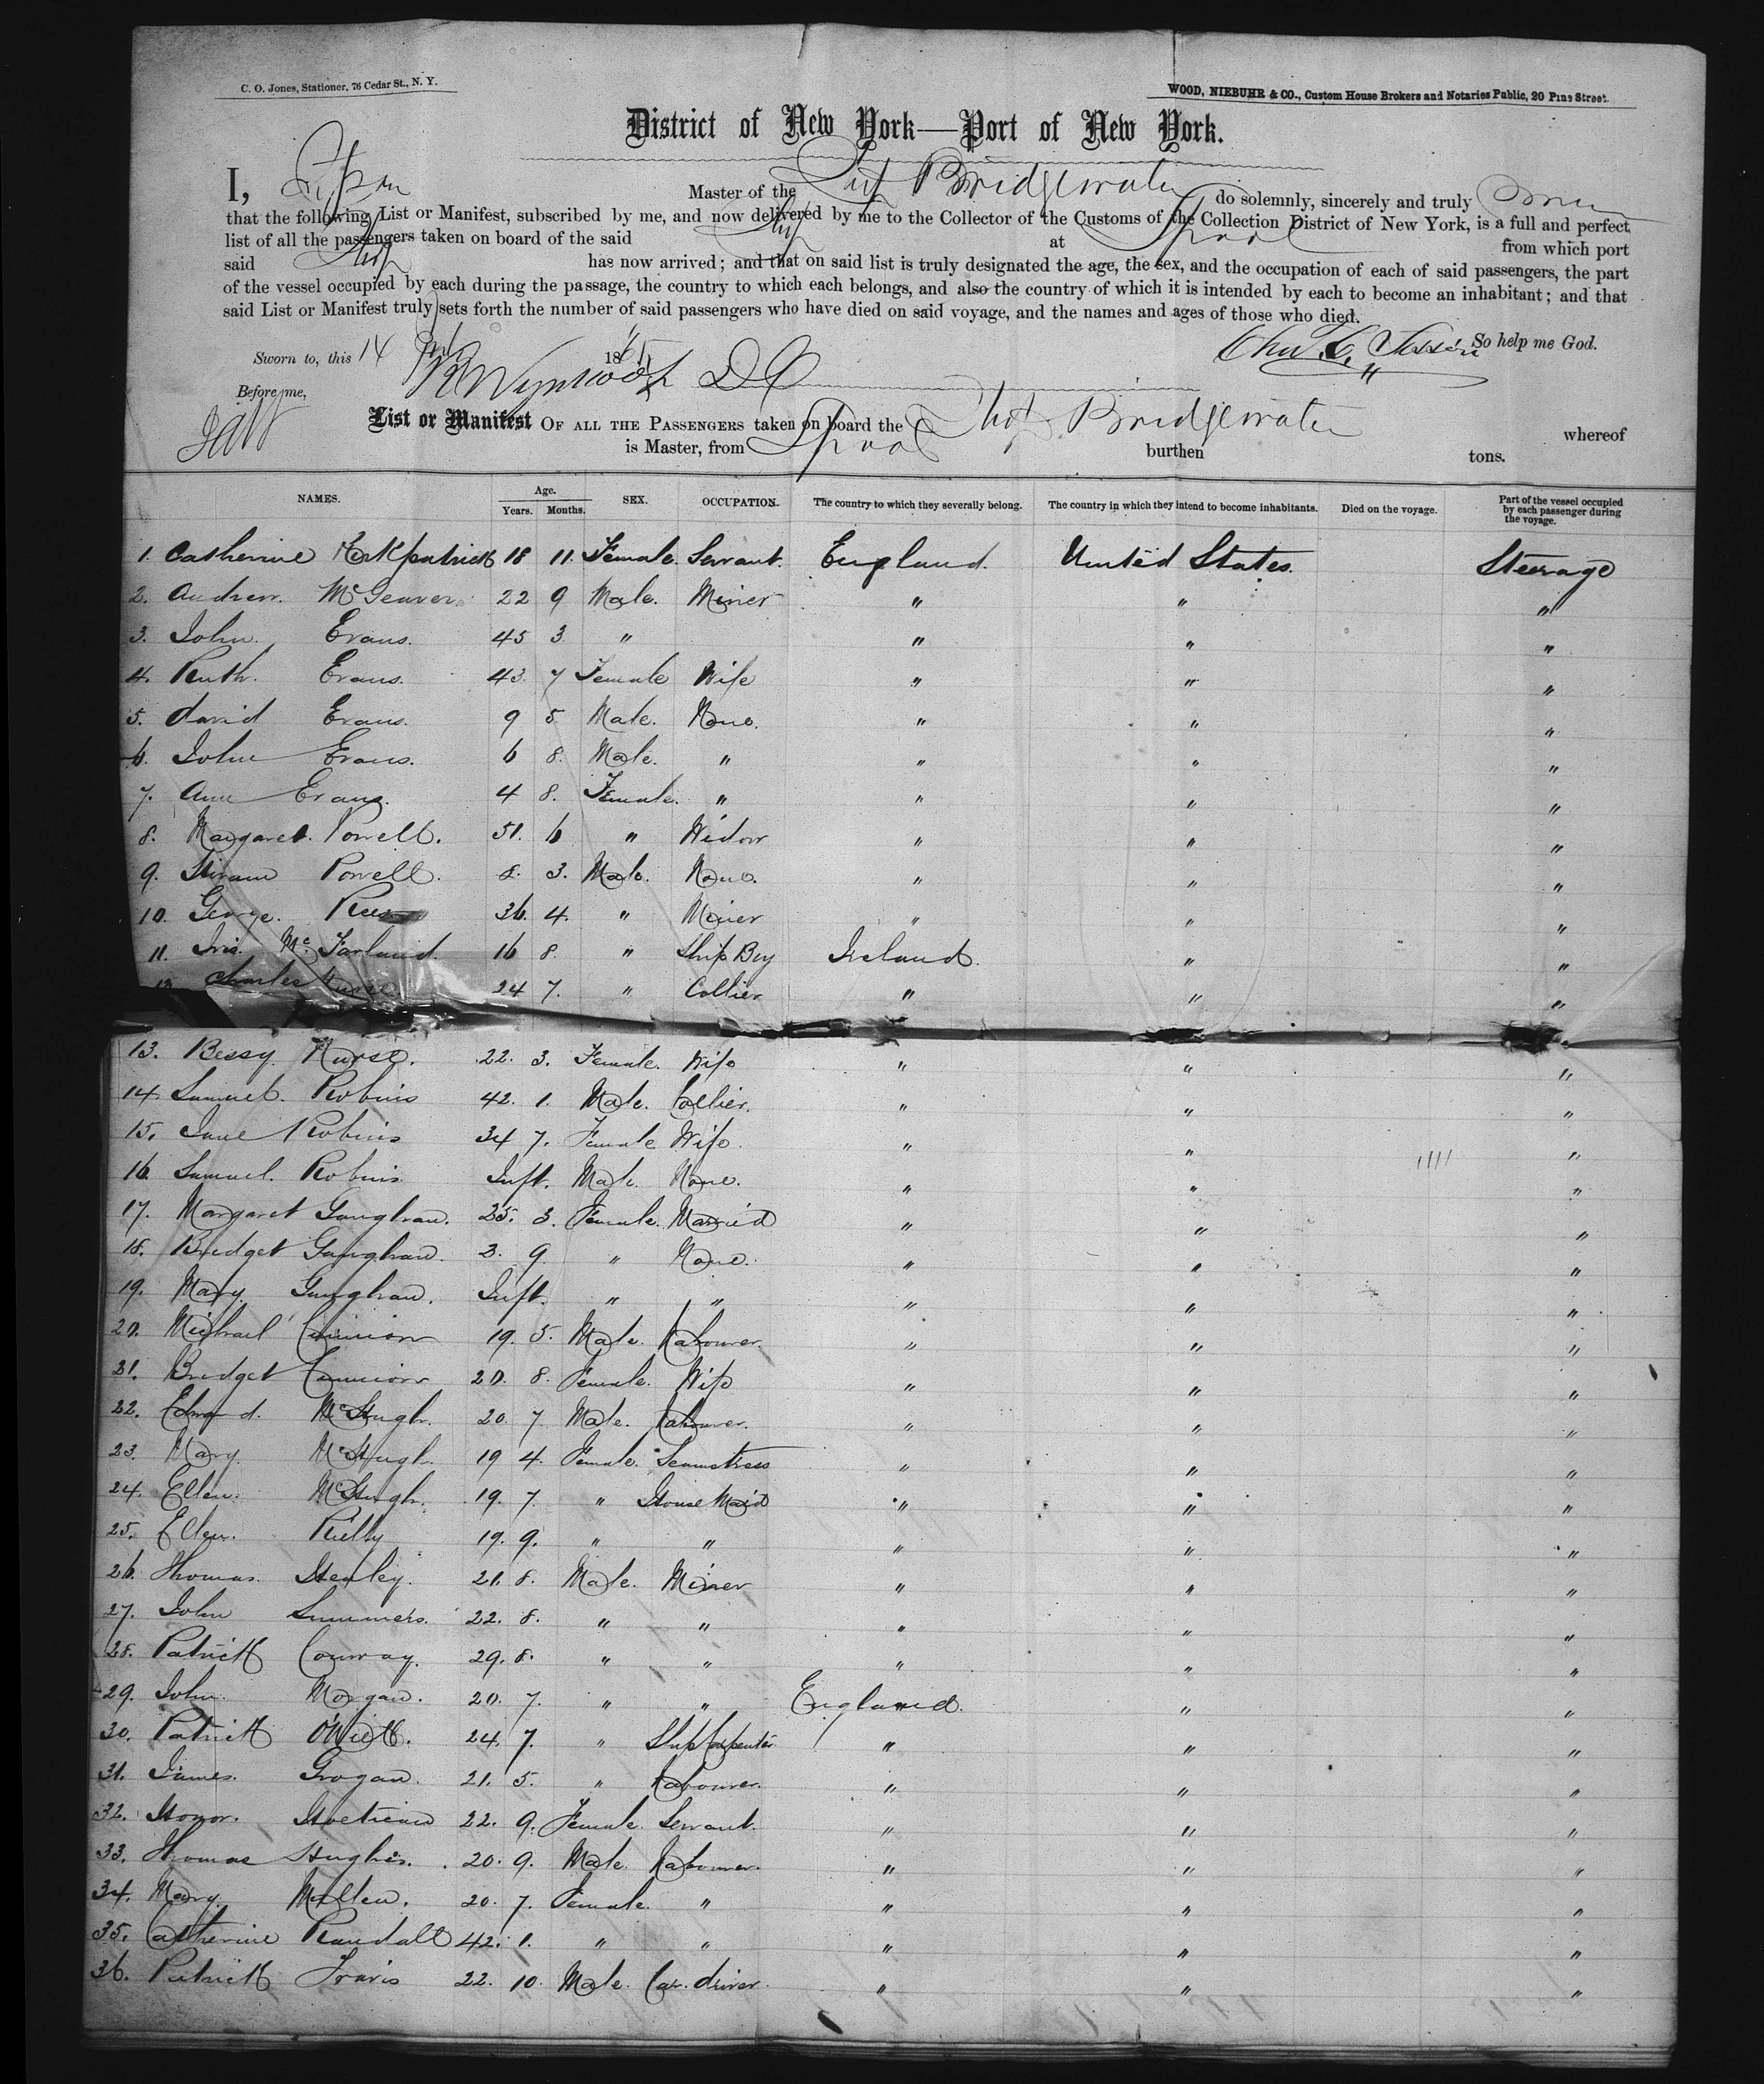 C. O. Jones, Stationer, 76 Cedar St., N. Y.
WOOD, NIEBUHR & CO., Custom House Brokers and Notaries Public, 20 Pine Street.
District of New York—Port of New York.
I, Master of the Ship Bridgewater do solemnly, sincerely and truly
that the following List or Manifest, subscribed by me, and now delivered by me to the Collector of the Customs of the Collection District of New York, is a full and perfect
list of all the passengers taken on board of the said Ship at Lpool from which port
said Ship has now arrived; and that on said list is truly designated the age, the sex, and the occupation of each of said passengers, the part
of the vessel occupied by each during the passage, the country to which each belongs, and also the country of which it is intended by each to become an inhabitant; and that
said List or Manifest truly sets forth the number of said passengers who have died on said voyage, and the names and ages of those who died.
So help me God.
Sworn to, this 14 1865
Before me, D C
List or Manifest OF ALL THE PASSENGERS taken on board the Ship Bridgewater whereof
is Master, from Lpool burthen tons.
NAMES. Age. Years. Months. SEX. OCCUPATION. The country to which they severally belong. The country in which they intend to become inhabitants. Died on the voyage. Part of the vessel occupied by each passenger during the voyage.
1. Catherine Kirkpatrick 18 11. Female. Servant. England. United States. Steerage
2. Andrew. 22 9 Male. Miner " " "
3. John. Evans. 45 3 " " " "
4. Ruth. Evans. 43. 7 Female Wife " " "
5. David Evans. 9 5 Male. None. " " "
6. John Evans. 6 8. Male. " " " "
7. Ann Evans. 4 8. Female. " " " "
8. Margaret. Powell. 51. 6 " Widow " " "
9. Hiram Powell. 8. 3. Male. None. " " "
10. George. Rees 36. 4. " Miner " " "
11. Mc Farland. 16 8. " Ship Boy Ireland. " "
12. Charles Nurse 24 7. " Collier " " "
13. Bessy Nurse. 22. 3. Female. Wife " " "
14. Samuel. Robins 42. 1. Male. Collier. " " "
15. Jane Robins 34 7. Female Wife. " " "
16. Samuel. Robins. Inft. Male. None. " " "
17. Margaret Gaughan. 25. 3. Female. Married " " "
18. Bridget Gaughan. 3. 9. " None. " " "
19. Mary. Gaughan. Inft. " " " " "
20. Michael 19. 5. Male. Labourer. " " "
21. Bridget 20. 8. Female. Wife " " "
22. Edward. McHugh. 20. 7 Male. Labourer. " " "
23. Mary. McHugh. 19 4. Female. Seamstress " " "
24. Ellen. McHugh. 19. 7. " House Maid " " "
25. Ellen. Reilly 19. 9. " " " " "
26. Thomas. Henley. 21. 8. Male. Miner " " "
27. John Summers. 22. 8. " " " " "
28. Patrick Conway. 29. 8. " " " " "
29. John. Morgan. 20. 7. " " England. " "
30. Patrick 24. 7. " Ship Carpenter " " "
31. James. Grogan. 21. 5. " Labourer. " " "
32. Honor. 22. 9. Female. Servant. " " "
33. Thomas Hughes. 20. 9. Male. Labourer. " " "
34. Mary. Mullen. 20. 7. Female. " " " "
35. Catherine Randall 42. 1. " " " " "
36. Patrick Travis 22. 10. Male. Car. driver. " " "